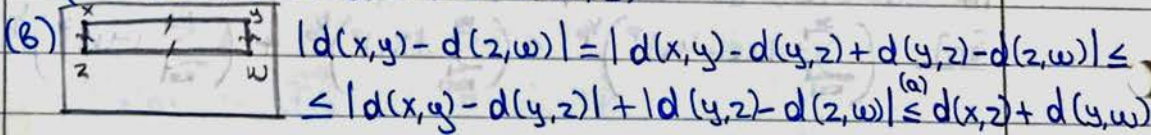 (B) x y |d(x,y) - d(z,w)| = |d(x,y) - d(y,z) + d(y,z) - d(z,w)| ≤
z w ≤ |d(x,y) - d(y,z)| + |d(y,z) - d(z,w)| ≤^(a) d(x,z) + d(y,w)